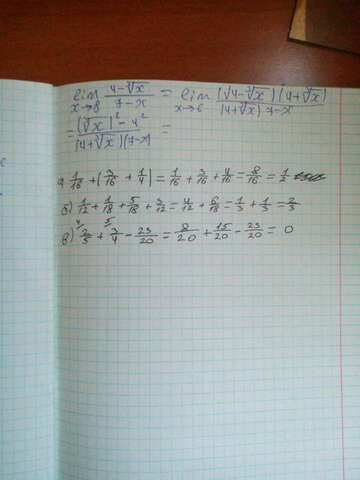 lim x→8 (4-∛x)/(7-x) = lim x→8 (√4-∛x)(4+∛x)/(4+∛x) 7-x
= (∛x)²-4²/(4+∛x)(7-x) =
а) 1/16+(3/16+1/4)=1/16+3/16+4/16=8/16=1/2
б) 1/12+1/18+5/18+3/12=4/12+6/18=1/3+1/3=2/3
в) 2/5+3/4-23/20=8/20+15/20-23/20=0